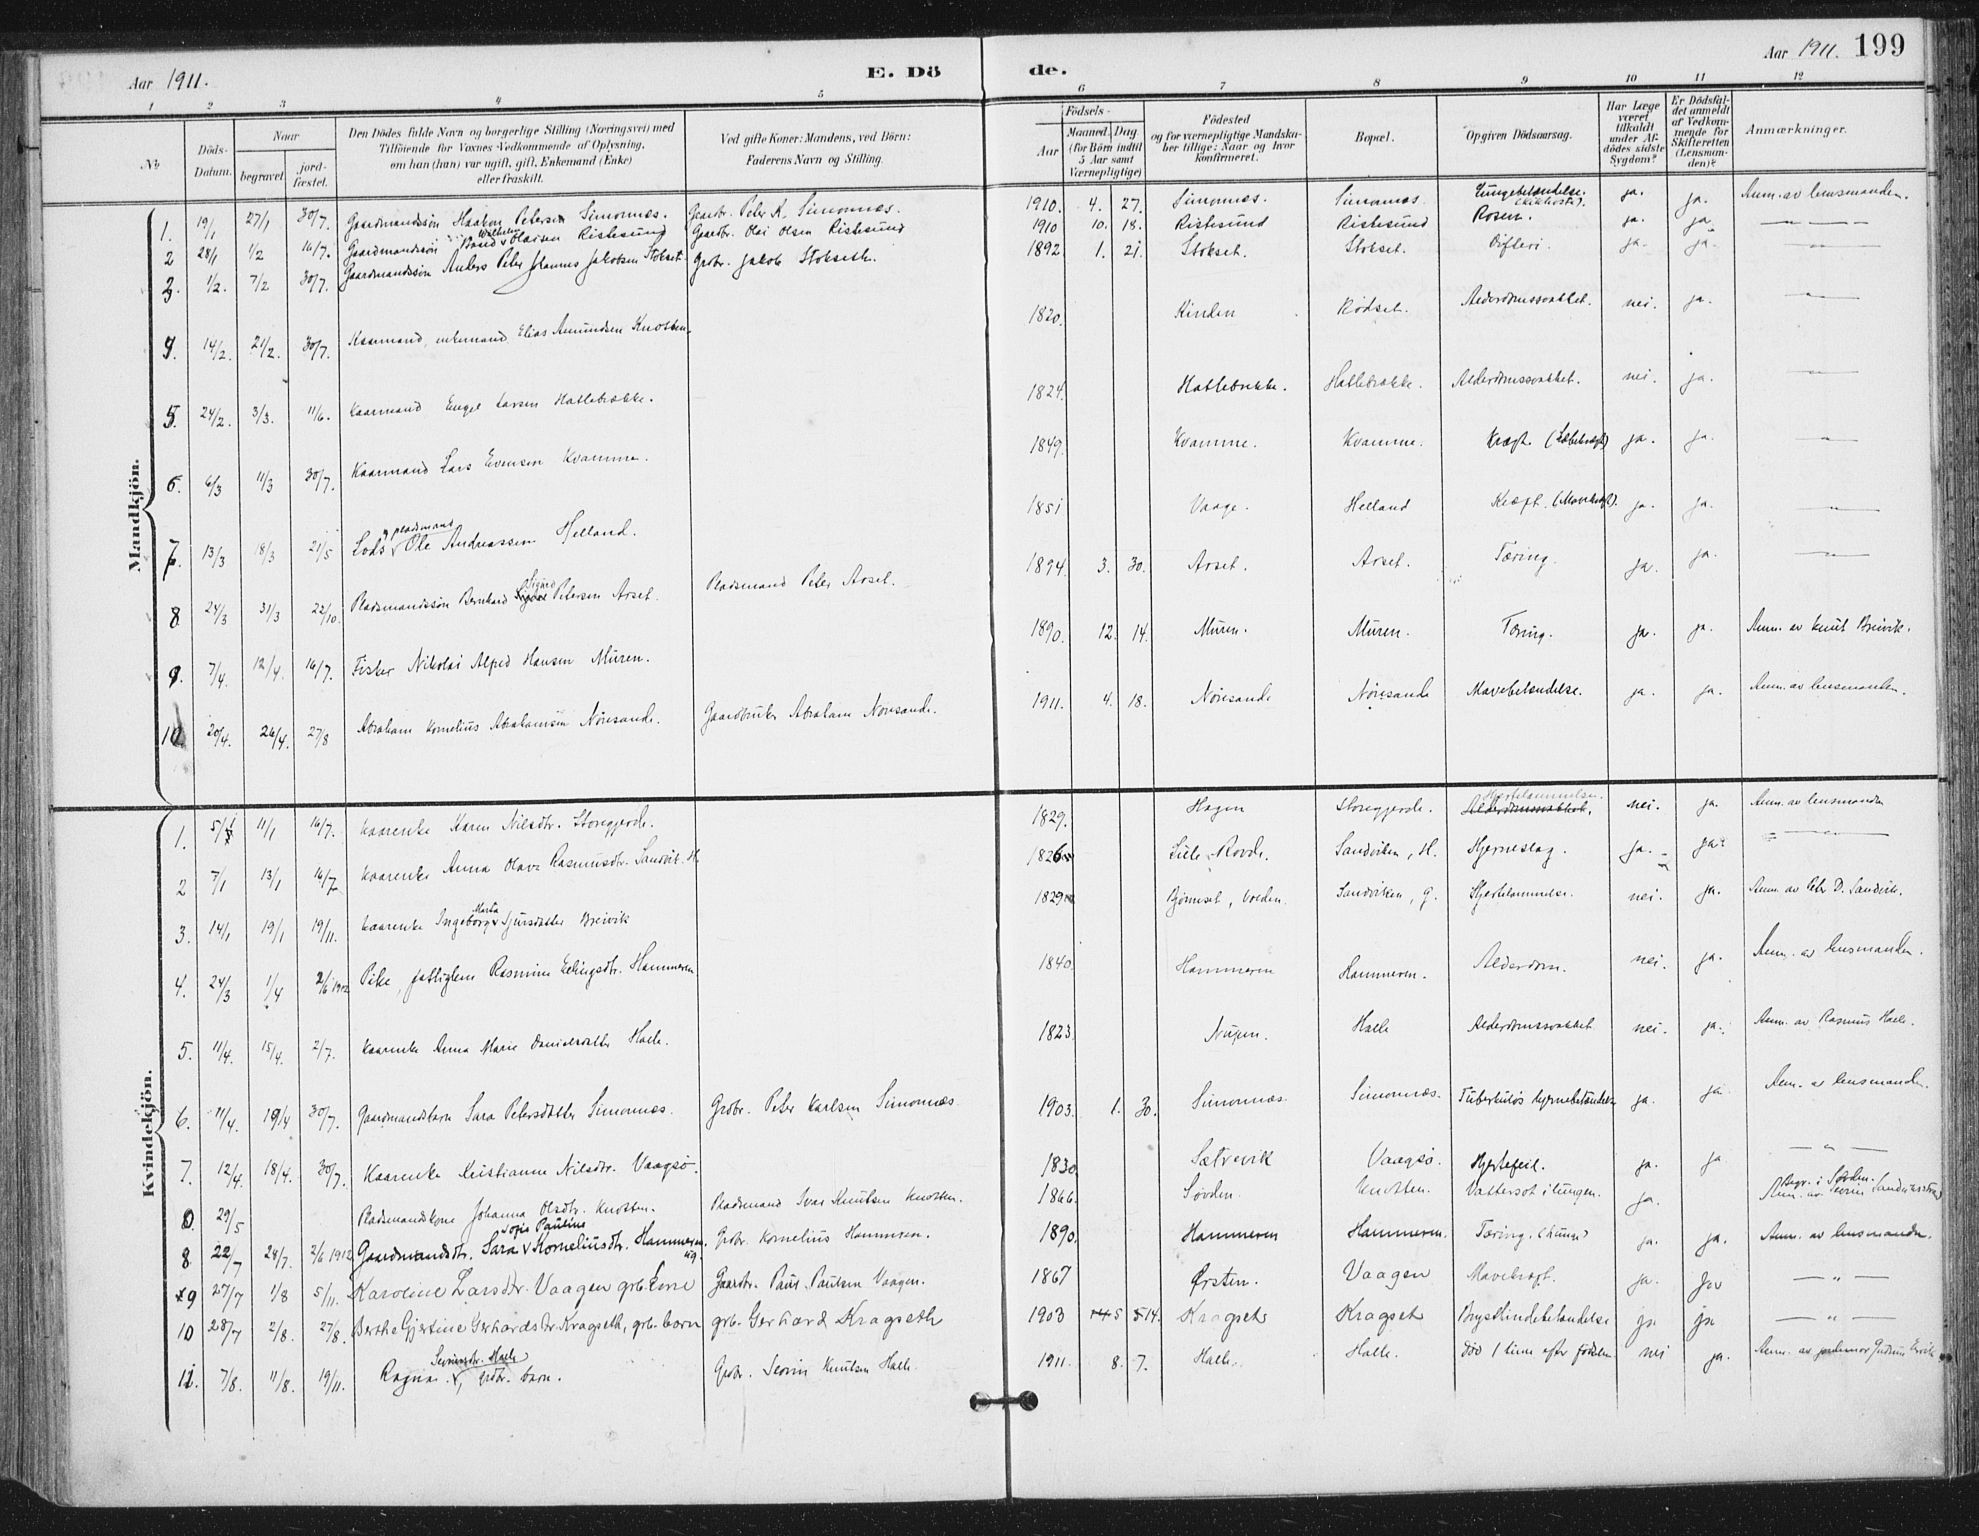 Aar 1911.
E. Dö
de.
Aar 1911. 199
1 2 3 4 5 6 7 8 9 10 11 12
No
Döds-Datum.
Naar
begravet.
jord-fæstet.
Den Dödes fulde Navn og borgerlige Stilling (Næringsvei) med
Tilföiende for Voxnes Vedkommende af Oplysning,
om han (hun) var ugift, gift, Enkemand (Enke)
eller fraskilt.
Ved gifte Koner: Mandens, ved Börn:
Faderens Navn og Stilling.
Födsels-
Aar
Maaned. Dag
(for Börn indtil
5 Aar samt
Værnepligtige)
Födested
og for værnepligtige Mandska-
ber tillige: Naar og hvor
konfirmeret.
Bopæl.
Opgiven Dödsaarsag.
Har Læge
været
tilkaldt
under Af-
dödes sidste
Sygdom?
Er Dödsfal-
det anmeldt
af Vedkom-
mende for
Skifteretten
(Lensman-
den)?
Anmærkninger.
Mandkjön.
1. 19/1 27/1 30/7. Gaardmandssön Haakon Petersen Simonnes. Gaardbr. Peter K. Simonnes. 1910. 4. 27. Simonnes. Simonnes. Lungebetændelse. (Kikhoste). ja. ja. Anm. av lensmanden.
2 28/1 1/2 16/7. Gaardmandssön Vilhelm Olaisen Ristesund Gaardbr. Olai Olsen Ristesund 1910 10. 18. Ristesund Ristesund Rosen. ja. ja. — " —
3. 1/2. 7/2 30/7. Gaardmandssön Anders Peter Johannes Jakobsen Stokset. Grdbr. Jakob Stokseth. 1892 1. 21. Stokset. Stokset. Difteri. ja. ja. — " —
4. 14/2. 21/2. 30/7. Kaarmand, enkemand Elias Amundsen Knotten. 1820. Kinden Rödset. Alderdomssvakhet. nei. ja. — " —
5. 24/2. 3/3. 11/6. Kaarmand Engel Larsen Hatlebrække. 1824. Hatlebrekke. Hatlebrække. Alderdomssvakhet. nei. ja. — " —
6. 6/3 11/3 30/7. Kaarmand Lars Evensen Kvamme. 1849. Kvamme. Kvamme. Kræft. (Læbekræft) ja. ja. — " —
7. 13/3 18/3 21/5 Lods & pladsmand Ole Andreassen Helland. 1851 Vaage. Helland Kræft. (Mavekræft). ja. ja. — " —
8 24/3 31/3 22/10. Pladsmandssön Bernhard Sigurd Petersen Aarset. Pladsmand Peter Arset. 1894. 3. 30. Arset. Arset. Tæring. ja. ja. — " —
9. 7/4. 12/4. 16/7. Fisker Nikolai Alfred Hansen Muren. 1890. 12. 14. Muren. Muren. Tæring. ja. ja. Anm. av Knut Breivik.
10 20/4. 26/4. 27/8 Abraham Kornelius Abrahamsen Nöresande. Gaardbruker Abraham Nöresande. 1911. 4. 18. Nöresande Nöresande Mavebetændelse. ja. ja. Anm. av lensmanden.
Kvindekjön.
1. 5/1 11/1 16/7. Kaarenke Karen Nilsdtr. Storegjerde. 1829. Hagen Storegjerde. Hjertelammelse. nei. ja. Anm. av lensmanden
2 7/1 13/1 16/7 Kaarenke Anna Olava Rasmusdtr. Sandvik. H. 1826 Lille-Rovde. Sandviken, H. Hjerneslag. ja. ja. — " —
3. 14/1 19/1 19/11. Kaarenke Ingeborg Marta Sjursdatter Breivik 1829 Bjørneset, Volden. Sandviken, G. Hjertelammelse. nei. ja. Anm. av Peter D. Sandvik.
4. 24/3 1/4 2/6 1912 Pike, fattiglem Rasmine Erlingsdtr. Hammeren 1840. Hammeren Hammeren. Alderdom. nei. ja. Anm. av lensmanden.
5. 11/4. 15/4. 2/7. Kaarenke Anna Marie Danielsdatter Halle. 1823. Nupen. Halle Alderdomssvakhet nei. ja. Anm. av Rasmus Halle.
6. 11/4. 19/4 30/7. Gaardmandsbarn Sara Petersdatter Simonnes. Grdbr. Peter Karlsen Simonnes 1903. 1. 30. Simonnes. Simonnes. Tuberkulös hjernebetændelse ja. ja. Anm. av lensmanden.
7. 12/4. 18/4. 30/7. Kaarenke Kristianne Nilsdtr. Vaagsö. 1830. Sætrevik Vaagsö. Hjertefeil. ja. ja. — " —
0. 29/5 Pladsmandskone Johanna Olsdtr. Knotten. Pladsmand Ivar Knutsen Knotten. 1866. Søvden. Knotten. Vattersot i lungen. ja. Begr. i Søvden.
8. 22/7 24/7. 2/6 1912 Gaardmandsdtr. Sara Sofie Pauline Kornelius dtr. Hammeren. ug. Grdbr. Kornelius Hammeren. 1890. Hammeren Hammeren. Tæring. (Lunge) ja. ja. Anm. av lensmanden.
9 27/7 1/8 5/11. Karoline Larsdtr. Vaagen grb. kone Gaardbr. Paul Paulsen Vaagen. 1867 Ørsten. Vaagen Mavekræft. ja. ja — " —
10 28/7 2/8. 27/8. Berthe Gjertine Gerhardsdtr. Kragseth, grb. barn grb. Gerhard Kragseth 1903 5 14. Kragset Kragset Brysthindebetændelse ja ja — " —
11. 7/8. 11/8. 19/11. Ragna Severinsdtr. Halle, grdbr. barn. Grdbr. Severin Knutsen Halle. 1911. 8. 7. Halle. Halle. död 1 time efter födselen nei ja. Anm. av jordemor Gudrun Ervik